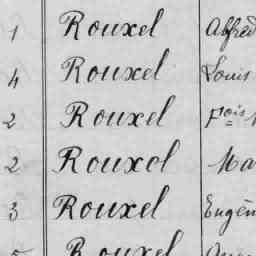 1 Rouxel Alfred
4 Rouxel Louis
2 Rouxel Fois
2 Rouxel Ma
3 Rouxel Eugèn
5 Rouxel